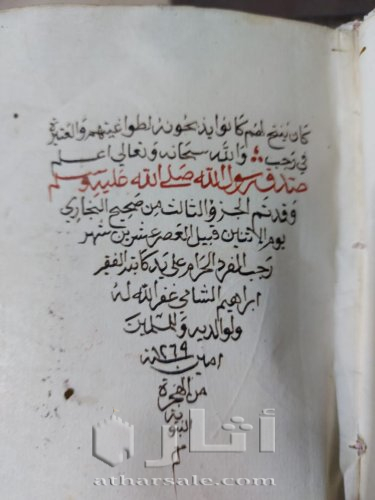 كان ينتج لهم كانوا يذبحونه لطواغيتهم والعتيرة
في رجب والله سبحانه وتعالى اعلم
صدق رسول الله صلى الله عليه وسلم
وقد تم الجزو الثالث من صحيح البخاري
يوم الاثنين قبيل العصر عشرين شهر
رجب الفرد الحرام على يد كاتبه الفقير
ابراهيم الشامي غفر الله له
ولوالديه وللمسلمين
امين سنة ١٢٦٩
من الهجرة
النبوية
م
آثار
atharsale.com